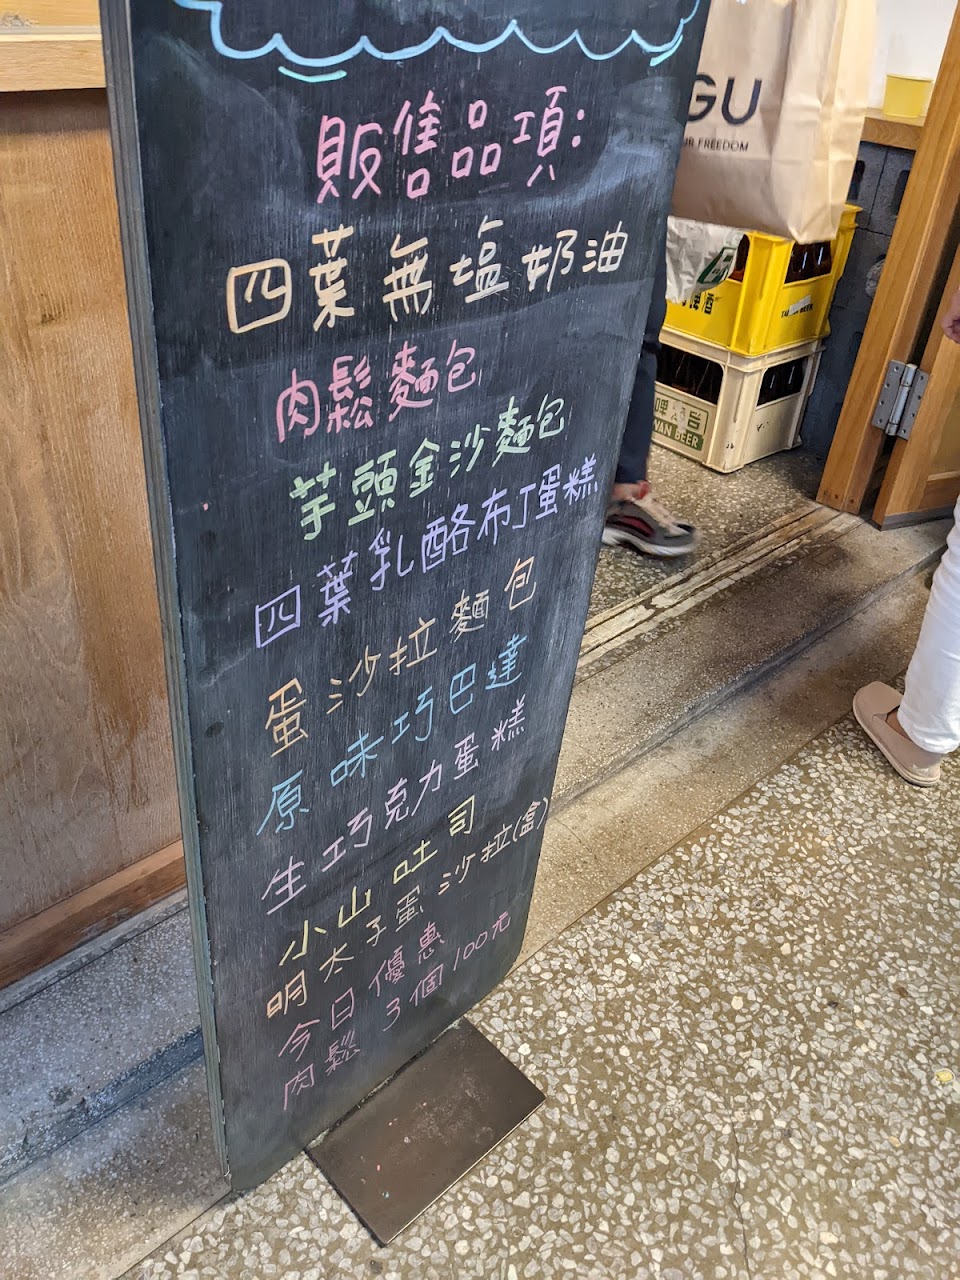 販售品項:
四葉無塩奶油
肉鬆麵包
芋頭金沙麵包
四葉乳酪布丁蛋糕
蛋沙拉麵包
原味巧巴達
生巧克力蛋糕
小山吐司
明太子蛋沙拉(盒)
今日優惠
肉鬆 3個100元
GU
UR FREEDOM
WAN BEER